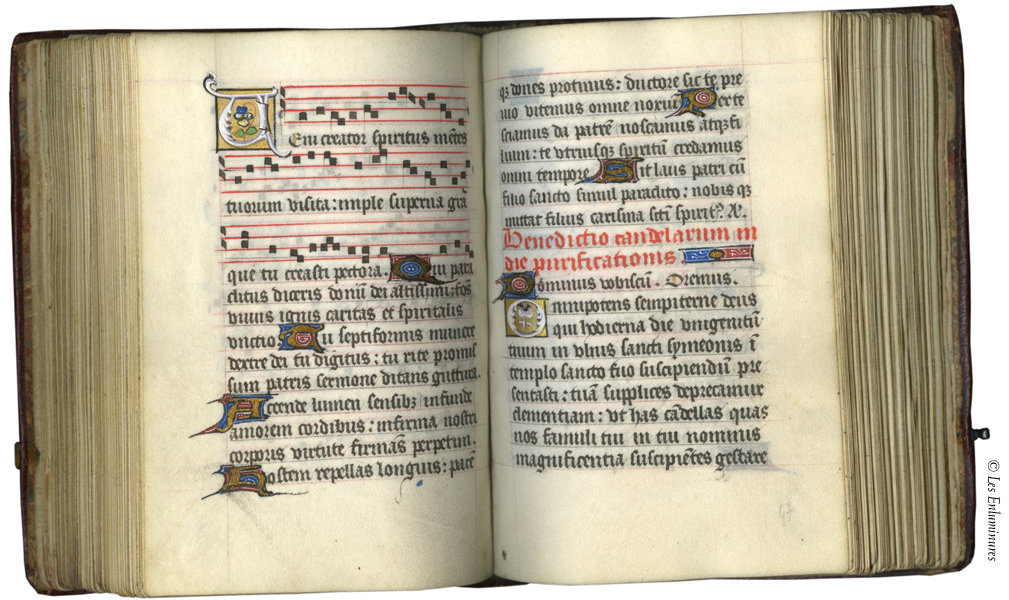 Veni creator spiritus mētes
tuorum visita: imple superna grā
que tu creasti pectora. Qui para
clitus diceris donū dei altissimi: fōs
vivus ignis caritas et spiritalis
unctio. Tu septiformis munere
dextre dei tu digitus: tu rite promis
sum patris sermone ditans guttura.
Accende lumen sensibꝫ infunde
amorem cordibus: infirma nostri
corporis virtute firmans perpetim.
Hostem repellas longius: pacē
qꝫ dones protinus: ductore sic te pre
vio vitemus omne noxiū. Per te
sciamus da patrē noscamus atqꝫ fi
lium: te utriusqꝫ spiritū credamus
omni tempore. Sit laus patri cū
filio sancto simul paradito: nobis qꝫ
mittat filius carisma scī spiritꝰ. Ⱥ.
Benedictio candelarum in
die purificationis.
Dominus vobiscū. Oremus.
Omnipotens sempiterne deus
qui hodierna die unigenitū
tuum in ulnis sancti symeonis ī
templo sancto tuo suscipiendū pre
sentasti: tuā supplices deprecamur
clementiam: ut has cādellas quas
nos famuli tui in tui nominis
magnificentia suscipiētes gestare
17
© Les Enluminures